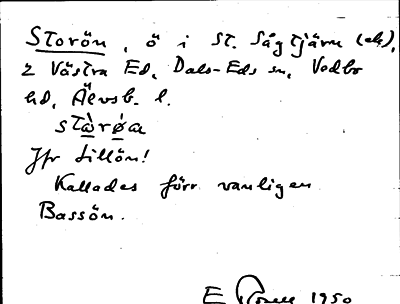 Storön, ö i St. Sågtjärn (ek),
2 Västra Ed, Dals-Eds sn, Vedbo
hd, Älvsb. l.
stàrø̀a
Jfr Lillön!
Kallades förr vanligen
Bassön.
E 1950